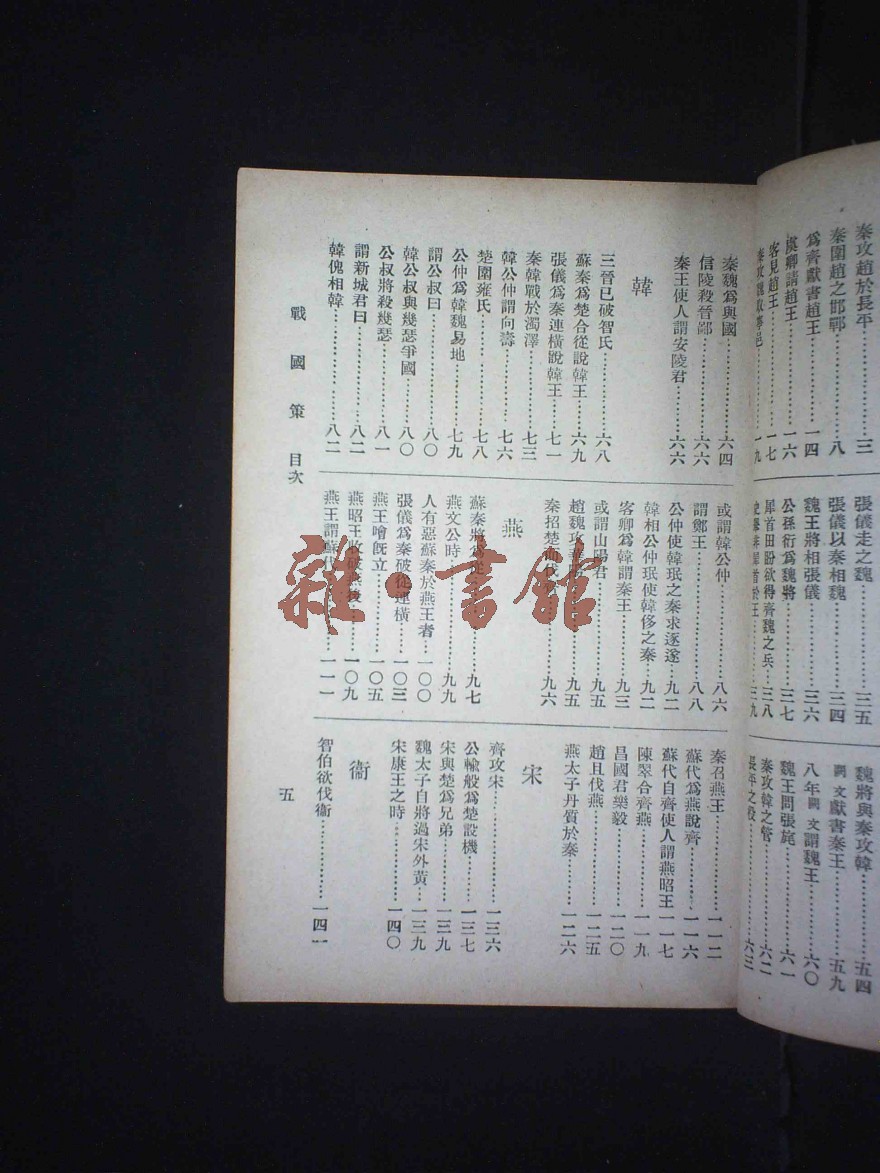 秦攻趙於長平……三
秦圍趙之邯鄲……八
爲齊獻書趙王……一四
虞卿請趙王……一六
客見趙王……一七
張儀走之魏……三五
張儀以秦相魏……三四
魏王將相張儀……三六
公孫衍爲魏將……三七
犀首田盼欲得齊魏之兵…三八
魏將與秦攻韓……五四
闕文獻書秦王……五九
八年闕文謂魏王……六〇
魏王問張旄……六一
秦攻韓之管……六二
秦魏爲與國……六四
信陵殺晉鄙……六六
秦王使人謂安陵君……六六
韓
三晉已破智氏……六八
蘇秦爲楚合從說韓王…六九
張儀爲秦連橫說韓王…七一
秦韓戰於濁澤……七三
韓公仲謂向壽……七六
楚圍雍氏……七八
公仲爲韓魏易地……七九
謂公叔曰……八〇
韓公叔與幾瑟爭國……八〇
公叔將殺幾瑟……八一
謂新城君曰……八二
韓傀相韓……八二
或謂韓公仲……八六
謂鄭王……八八
公仲使韓珉之秦求逐遂…九二
韓相公仲珉使韓侈之秦…九二
客卿爲韓謂秦王……九三
或謂山陽君……九五
趙魏攻華……九五
秦招楚而伐……九六
燕
蘇秦將爲從……九七
燕文公時……九九
人有惡蘇秦於燕王者…一〇〇
張儀爲秦破從連橫……一〇三
燕王噲旣立……一〇五
燕昭王收破燕後……一〇九
燕王謂蘇代……一一一
秦召燕王……一一二
蘇代爲燕說齊……一一六
蘇代自齊使人謂燕昭王一一七
陳翠合齊燕……一一九
昌國君樂毅……一二〇
趙且伐燕……一二五
燕太子丹質於秦……一二六
宋
齊攻宋……一三六
公輸般爲楚設機……一三七
宋與楚爲兄弟……一三九
魏太子自將過宋外黃…一三九
宋康王之時……一四〇
衞
智伯欲伐衞……一四一
戰國策 目次
五
雜·書館